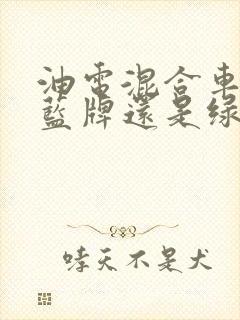 油電混合車
藍牌還是綠
哮天不是犬